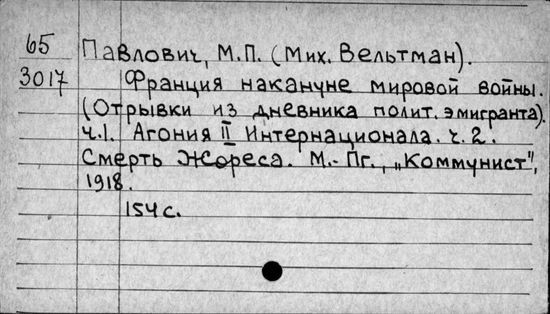 65
3017
Павлович, М.П. (Мих. Вельтман).
Франция накануне мировой войны.
(Отрывки из дневника полит. эмигранта).
ч.1. Агония II Интернационала. ч. 2.
Смерть Жореса. М.-Пг., „Коммунист",
1918.
154 с.